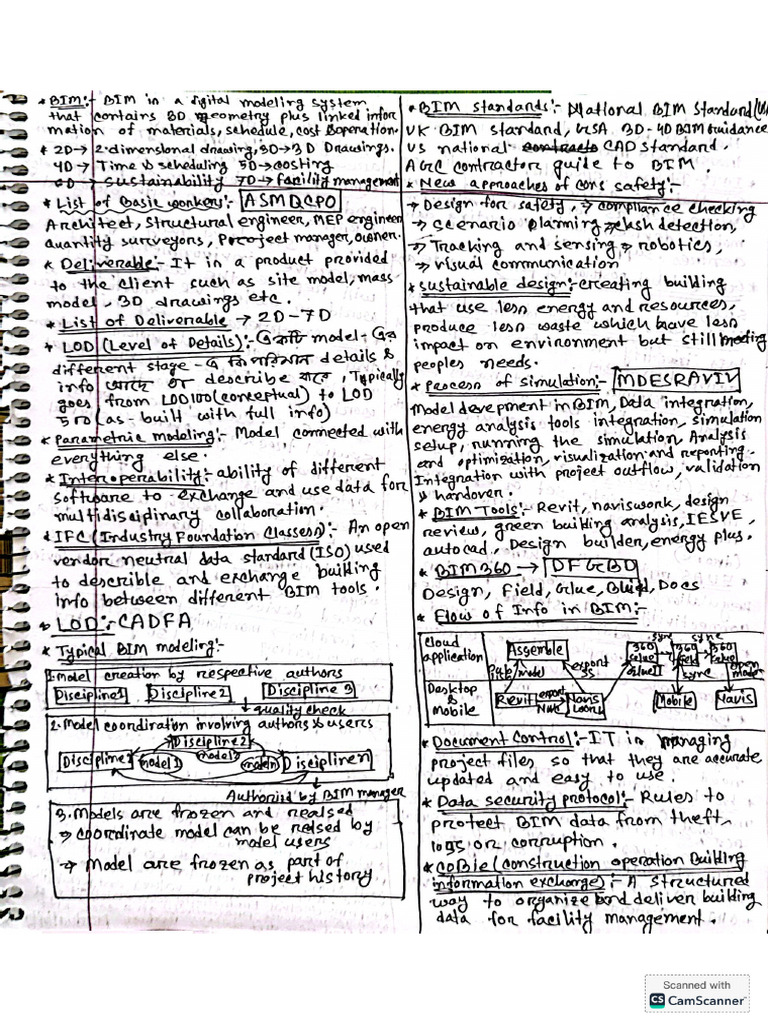 * BIM:- BIM in a digital modeling system
that contains 3D geometry plus linked infor
mation of materials, schedule, cost & operation.
* 2D→ 2-dimensional drawing, 3D→3D Drawings.
4D→ Time & scheduling 5D→costing
6D→ sustainability 7D→ facility management
* List of Basic workers:- ASMQCPO
Architect, Structural engineer, MEP engineer
quantity surveyors, Project manager, owner.
* Deliverable:- It in a product provided
to the client such as site model, mass
model, 3D drawings etc.
* List of Deliverable → 2D-7D
* LOD (Level of Details):- একটি model-এর
different stage-এ কি পরিমান details &
info আছে তা describe করে, Typically
goes from LOD100(conceptual) to LOD
500 (as-built with full info)
* Parametric modeling:- Model connected with
everything else.
* Interoperability:- ability of different
software to exchange and use data for
multidisciplinary collaboration.
* IFC (Industry Foundation Classes):- An open
vendor neutral data standard (ISO) used
to describle and exchange building
info between different BIM tools.
* LOD:- CADFA
* Typical BIM modeling:-
1. Model creation by respective authors
Discipline1 Discipline 2 Discipline 3
quality check
2. Model coordination involving authors & users
Discipline2
Discipline1 model1 model2 modeln Disciplinen
Authorized by BIM manager
3. Models are frozen and realsed
⇒ coordinate model can be relsed by
model users
→ Model are frozen as part of
project history
* BIM standards:- National BIM Standard (US
UK BIM standard, GSA 3D-4D BIM Guidance
US national CAD Standard.
AGC contractor guide to BIM.
* New approaches of cons safety:-
→ Design for safety, ⇒ compliance checking
⇒ scenario planning ⇒ clash detection,
⇒ Tracking and sensing ⇒ robotics,
⇒ visual communication
* sustainable design:- creating building
that use less energy and resources,
produce less waste which have less
impact on environment but still meeting
peoples needs.
* Process of simulation:- MDESRAVIV
Model devepment in BIM, Data integration,
energy analysis tools integration, simulation
setup, running the simulation, Analysis
and optimization, visualization and reporting.
Integration with project outflow, validation
& handover.
* BIM Tools:- Revit, naviswork, design
review, green builing analysis, IESVE,
autocad, Design builder, energy plus.
* BIM360 → DFGBD
Design, Field, Glue, Build, Docs
* Flow of Info in BIM:-
Cloud application
Assemble
360 Glue
360 field
360 Glue
sync sync
sync
model
export
open
Desktop & Mobile
Revit
export
Mobile
Navis
* Document Control:- IT in managing
project files so that they are accurate
updated and easy to use.
* Data security protocol:- Rules to
protect BIM data from theft,
loss or corruption.
* COBie (construction operation Building
information exchange):- A structured
way to organize and deliver building
data for facility management.
Scanned with
CS CamScanner